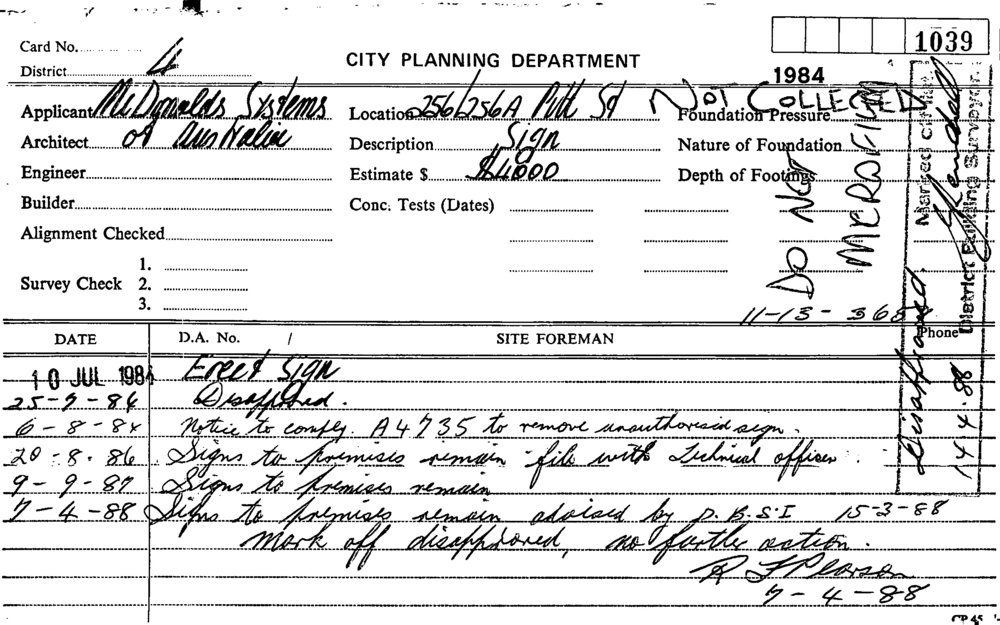 1039
Card No.
District 4
CITY PLANNING DEPARTMENT
1984
Applicant McDonalds Systems
Location 256/256A Pitt St
NOT COLLECTED
Foundation Pressure
Architect of Australia
Description Sign
Nature of Foundation
Engineer
Estimate $ $4000
Depth of Footings
Builder
Conc. Tests (Dates)
Alignment Checked
Survey Check
1.
2.
3.
DO NOT
MICROFILM
11-13-365
Marked off
Disapproved
District Building Surveyor
14.4.88
DATE
D.A. No. /
SITE FOREMAN
Phone
10 JUL 1984 Erect Sign
25-7-84 Disapproved.
6-8-84 Notice to comply. A4735 to remove unauthorised sign.
20-8-86 Signs to premises remain file with Technical officer
9-9-87 Signs to premises remain
7-4-88 Signs to premises remain advised by D.B.S.I 15-3-88
Mark off disapproved, no further action.
R F Pearson
7-4-88
CP 45